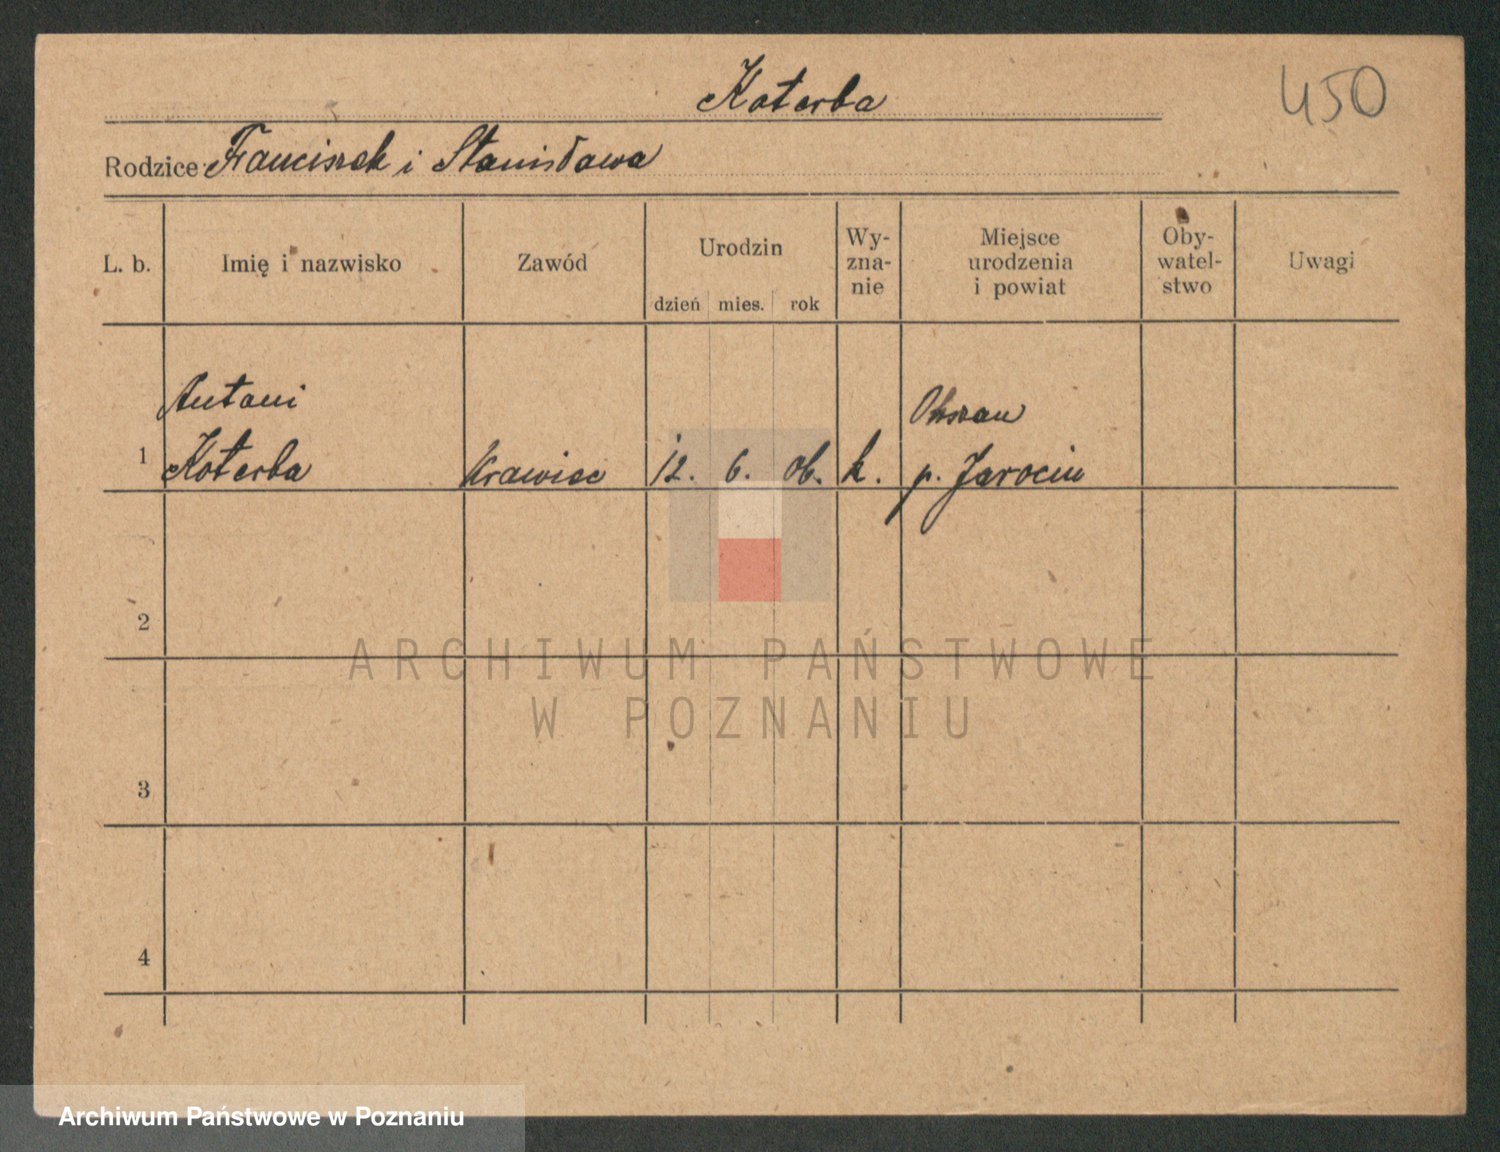 Koterba
450
Rodzice Franciszek i Stanisława
L. b.
Imię i nazwisko
Zawód
Urodzin
dzień mies. rok
Wy-
zna-
nie
Miejsce
urodzenia
i powiat
Oby-
watel-
stwo
Uwagi
Antoni
1 Koterba Krawiec 12. 6. 06. k. p. Jarocin
2
3
4
ARCHIWUM PAŃSTWOWE
W POZNANIU
Archiwum Państwowe w Poznaniu